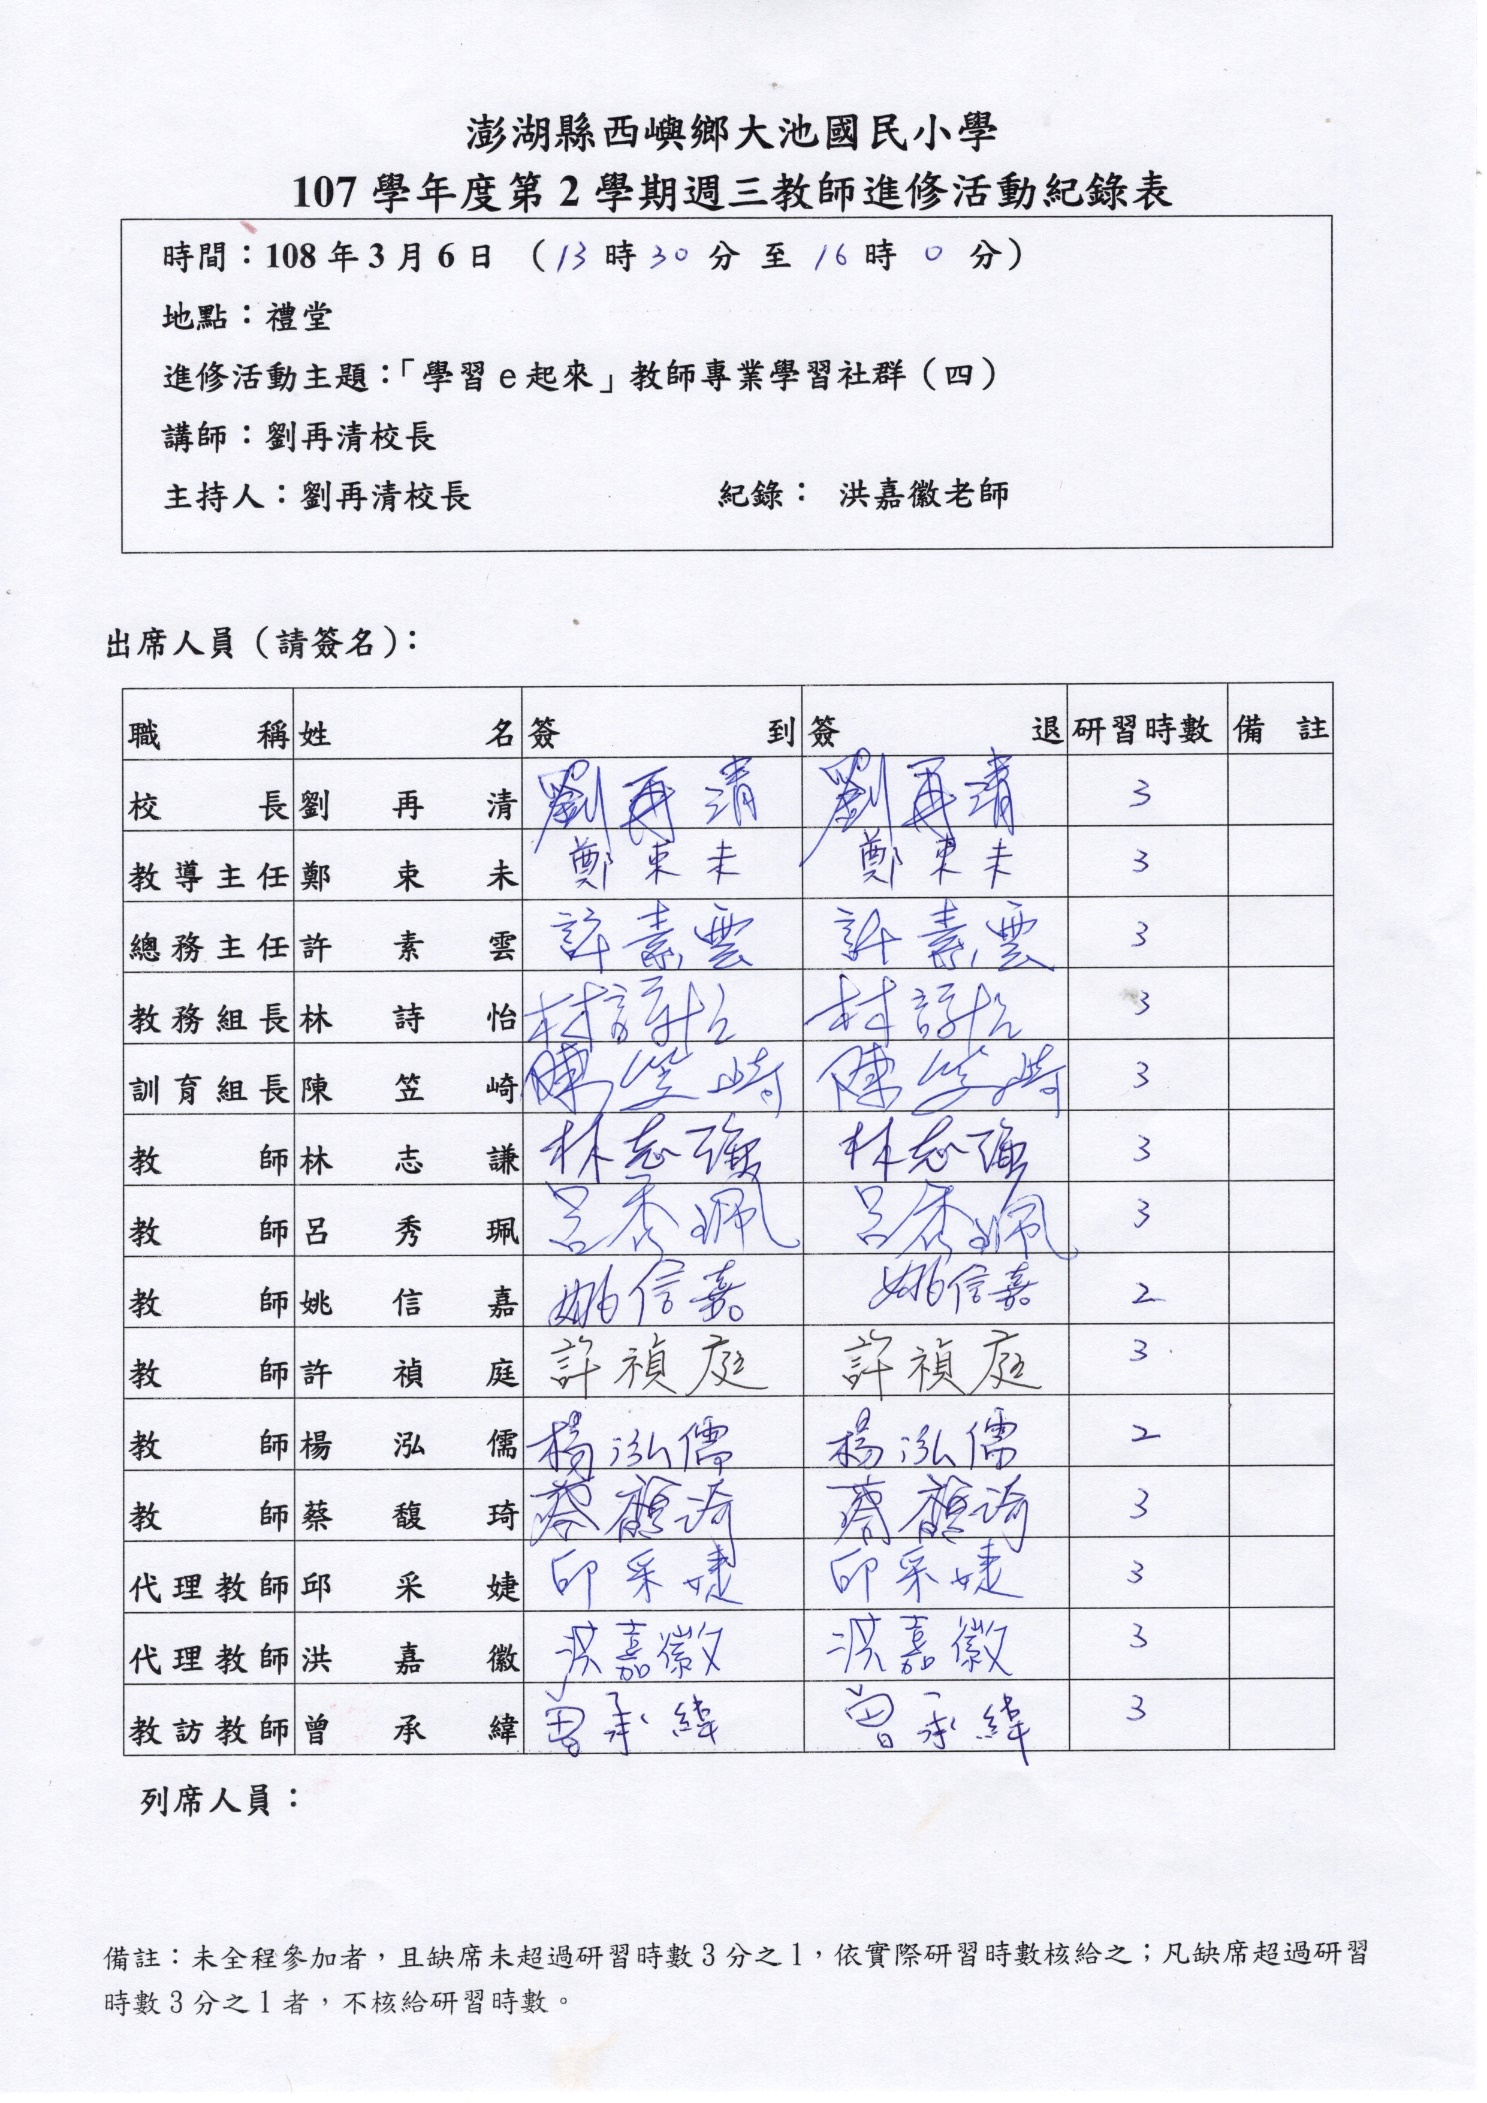 澎湖縣西嶼鄉大池國民小學
107 學年度第 2 學期週三教師進修活動紀錄表
時間：108 年 3 月 6 日 （13 時 30 分 至 16 時 0 分）
地點：禮堂
進修活動主題：「學習 e 起來」教師專業學習社群（四）
講師：劉再清校長
主持人：劉再清校長 紀錄： 洪嘉徽老師
出席人員（請簽名）：
職稱 姓名 簽到 簽退 研習時數 備註
校長 劉再清 劉再清 劉再清 3
教導主任 鄭束未 鄭束未 鄭束未 3
總務主任 許素雲 許素雲 許素雲 3
教務組長 林詩怡 林詩怡 林詩怡 3
訓育組長 陳笠崎 陳笠崎 陳笠崎 3
教師 林志謙 林志謙 林志謙 3
教師 呂秀珮 呂秀珮 呂秀珮 3
教師 姚信嘉 姚信嘉 姚信嘉 2
教師 許禎庭 許禎庭 許禎庭 3
教師 楊泓儒 楊泓儒 楊泓儒 2
教師 蔡馥琦 蔡馥琦 蔡馥琦 3
代理教師 邱采婕 邱采婕 邱采婕 3
代理教師 洪嘉徽 洪嘉徽 洪嘉徽 3
教訪教師 曾承緯 曾承緯 曾承緯 3
列席人員：
備註：未全程參加者，且缺席未超過研習時數 3 分之 1，依實際研習時數核給之；凡缺席超過研習
時數 3 分之 1 者，不核給研習時數。